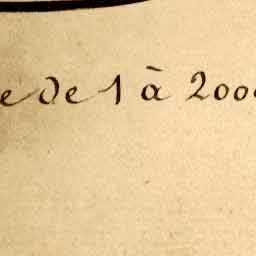 e de 1 à 2000